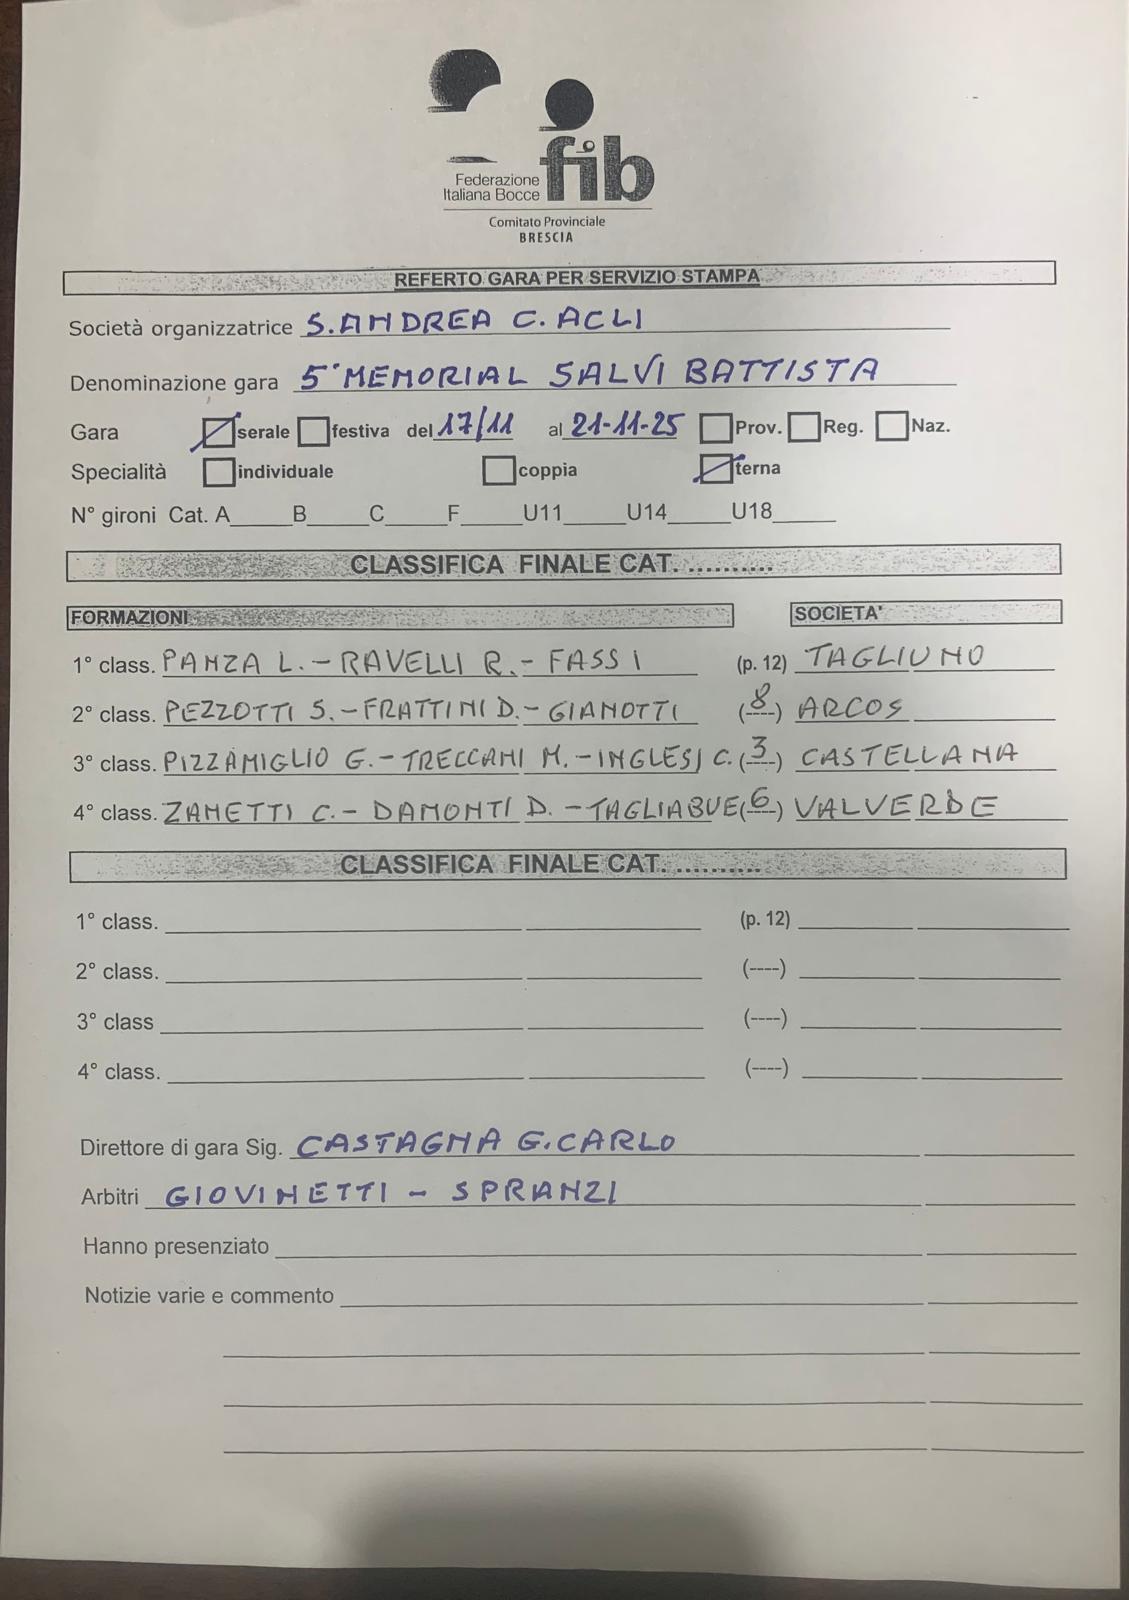 fib
Federazione
Italiana Bocce
Comitato Provinciale
BRESCIA
REFERTO GARA PER SERVIZIO STAMPA
Società organizzatrice S. ANDREA C. ACLI
Denominazione gara 5° MEMORIAL SALVI BATTISTA
Gara serale festiva del 17/11 al 21-11-25 Prov. Reg. Naz.
Specialità individuale coppia terna
N° gironi Cat. A_____B_____C_____F_____U11_____U14_____U18_____
CLASSIFICA FINALE CAT. ..........
FORMAZIONI SOCIETA'
1° class. PANZA L. - RAVELLI R. - FASSI (p. 12) TAGLIUNO
2° class. PEZZOTTI S. - FRATTINI D. - GIANOTTI (8) ARCOS
3° class. PIZZAMIGLIO G. - TRECCANI M. - INGLESI C. (3) CASTELLANA
4° class. ZANETTI C. - DAMONTI D. - TAGLIABUE (6) VALVERDE
CLASSIFICA FINALE CAT. ..........
1° class. (p. 12)
2° class. (----)
3° class (----)
4° class. (----)
Direttore di gara Sig. CASTAGNA G. CARLO
Arbitri GIOVINETTI - SPRIANZI
Hanno presenziato
Notizie varie e commento